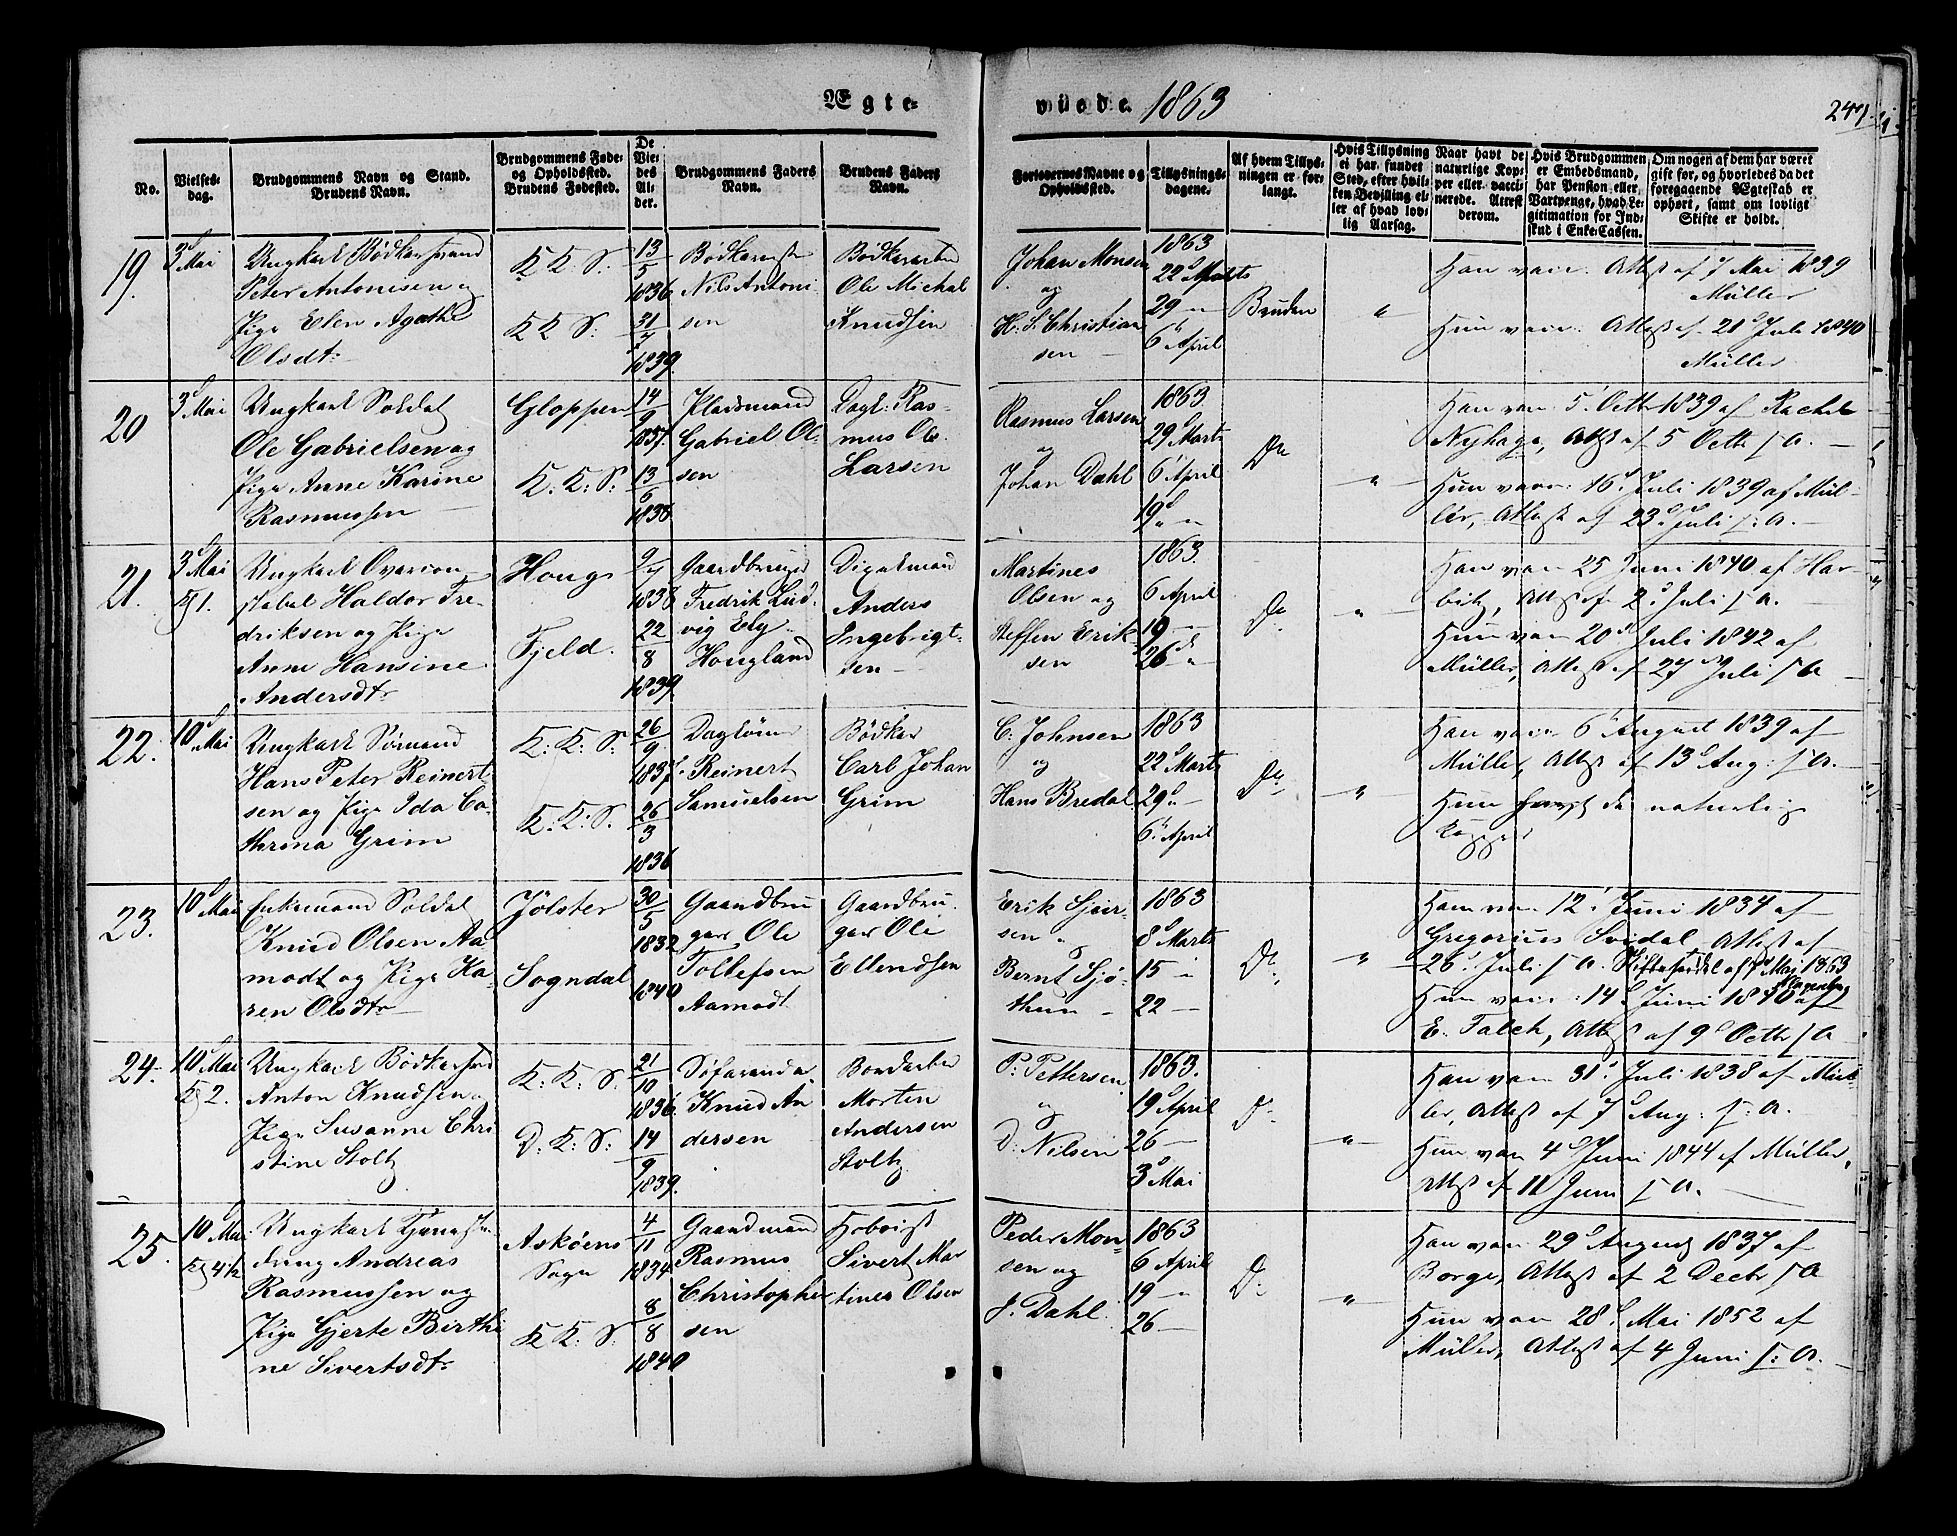 Ægte- viede. 1863
247
No.
Vielses-
dag.
Brudgommens Navn og Stand.
Brudens Navn.
Brudgommens Føde-
og Opholdssted.
Brudens Fødested.
De
Vie-
des
Al-
der.
Brudgommens Faders
Navn.
Brudens Faders
Navn.
Forlovernes Navne og
Opholdssted.
Tillysnings-
dagene.
Af hvem Tillys-
ningen er for-
langt.
Hvis Tillysning
ei har fundet
Sted, efter hvil-
ken Bevilling el-
ler af hvad lov-
lig Aarsag.
Naar havt de
naturlige Kop-
per eller vacci-
nerede. Attest
derom.
Hvis Brudgommen
er Embedsmand,
har Pension eller
Vartpenge, hvad Le-
gitimation for Ind-
skud i Enke-Cassen.
Om nogen af dem har været
gift før, og hvorledes da det
foregaaende Ægteskab er
ophørt, samt om lovligt
Skifte er holdt.
19.
3d Mai
Ungkarl Bødkersvend
Peter Antonisen og
Pige Elen Agathe
Olsdtr
K K S:
K K S:
13/5
1836
31/7
1839.
Bødkersv
Nils Antoni
sen
Bødkerarbe
Ole Michal
Knudsen
Johan Monsen
og
H. S. Christian
sen
1863
22d Marts
29 —
6 April
Bruden
"
Han vacc: Attest af 7 Mai 1839
Müller
Hun vacc: Attest af 21d Juli 1840
Müller
20
3d Mai
Ungkarl Soldat
Ole Gabrielsen og
Pige Anne Karine
Rasmussen
Gloppen
K: K: S:
14/9
1837.
13/6
1838
Pladsmand
Gabriel Ol-
sen
Dagl: Ras-
mus Ols.
Larsen
Rasmus Larsen
og
Johan Dahl
1863.
29d Marts
6 April
19d "
Do
"
Han vacc 5' Octb 1839 af Rachel
Nyhage, Attest af 5 Octb s. a.
Hun vacc: 16d Juli 1839 af Mül-
ler, Attest af 23d Juli s. a.
21.
3d Mai
Kl 1.
Ungkarl Overcon-
stabel Haldor Fre-
driksen og Pige
Anne Hansine
Andersdtr
Houg
Fjeld.
9/7
1838
22/8
1839
Gaardbruger
Fredrik Lud-
vig Ely
Hougland
Anders
Ingebrigt-
sen
Martines
Olsen og
Steffen Erik-
sen
1863.
6 April
19 —
26d "
Do
"
Han vacc 25 Juni 1840 af Har-
bitz, Attest af 2d Juli s. a.
Hun vacc 20d Juli 1842 af
Müller, Attest af 27 Juli s a
22.
10d Mai
Ungkarl Sømand
Hans Peter Reinert-
sen og Pige Ida Ca-
thrina Grim
K: K: S.
K: K: S.
26/9
1837.
26/3
1836
Dagløner
Reinert
Samuelsen
Bødker
Carl Johan
Grim
C. Johnsen
og
Hans Bredal
1863
22d Marts
29d —
6' April
Do
"
Han vacc 6' August 1839 af
Müller, Attest af 13d Aug: s a.
Hun havt de naturlig
Kopper
23.
10d Mai
Enkemand Soldat
Knud Olsen Aa-
modt og Pige Ka-
ren Olsdtr
Jølster
Sogndal
30/5
1832
1840
Gaardbru
ger Ole
Tollefsen
Aamodt
Gaardbru-
ger Ole
Ellendsen
Erik Sjur-
sen og
Bernt Sjø-
thun
1863
8d Marts
15 —
22 —
Do
"
Han vacc 12' Juni 1834 af
Gregorius Svidal, Attest af
26' Juli s a. Skifteattest af 7d Mai 1863
Hun vacc: 14d Juni 1840 af
E. Falch, Attest af 9d Octb s a
24.
10d Mai
Kl 2.
Ungkarl Bødkersvend
Anton Knudsen og
Pige Susanne Chri
stine Stoltz
K: K: S:
D: K: S:
21/10
1836
14/9
1839.
Knud An
dersen
Bordarbei
Morten
Andersen
Stoltz
P. Pettersen
og
D: Nilsen
1863.
19d April
26 —
3d Mai
Do
"
Han vacc 31' Juli 1838 af Mül-
ler, Attest af 7d Aug: s: a.
Hun vacc 4d Juni 1844 af Müller,
Attest af 11 Juni s a.
25.
10 Mai
Kl 4½
Ungkarl
dreng Andreas
Rasmussen og
Pige Gjerte Birthi
ne Sivertsdtr
Askøens
Sogn
K K: S:
4/11
1834
8/8
1840
Gaardmand
Rasmus
Christopher
sen
Sivert Mar
tines Olsen
Peder Mon-
sen og
J. Dahl.
1863
6 April
19 — "
26 —
Do
"
Han vacc 29d August 1837 af
Borge, Attest af 2 Decbr s a
Hun vacc 28d Mai 1852 af
Müller, Attest af 4 Juni s: a.